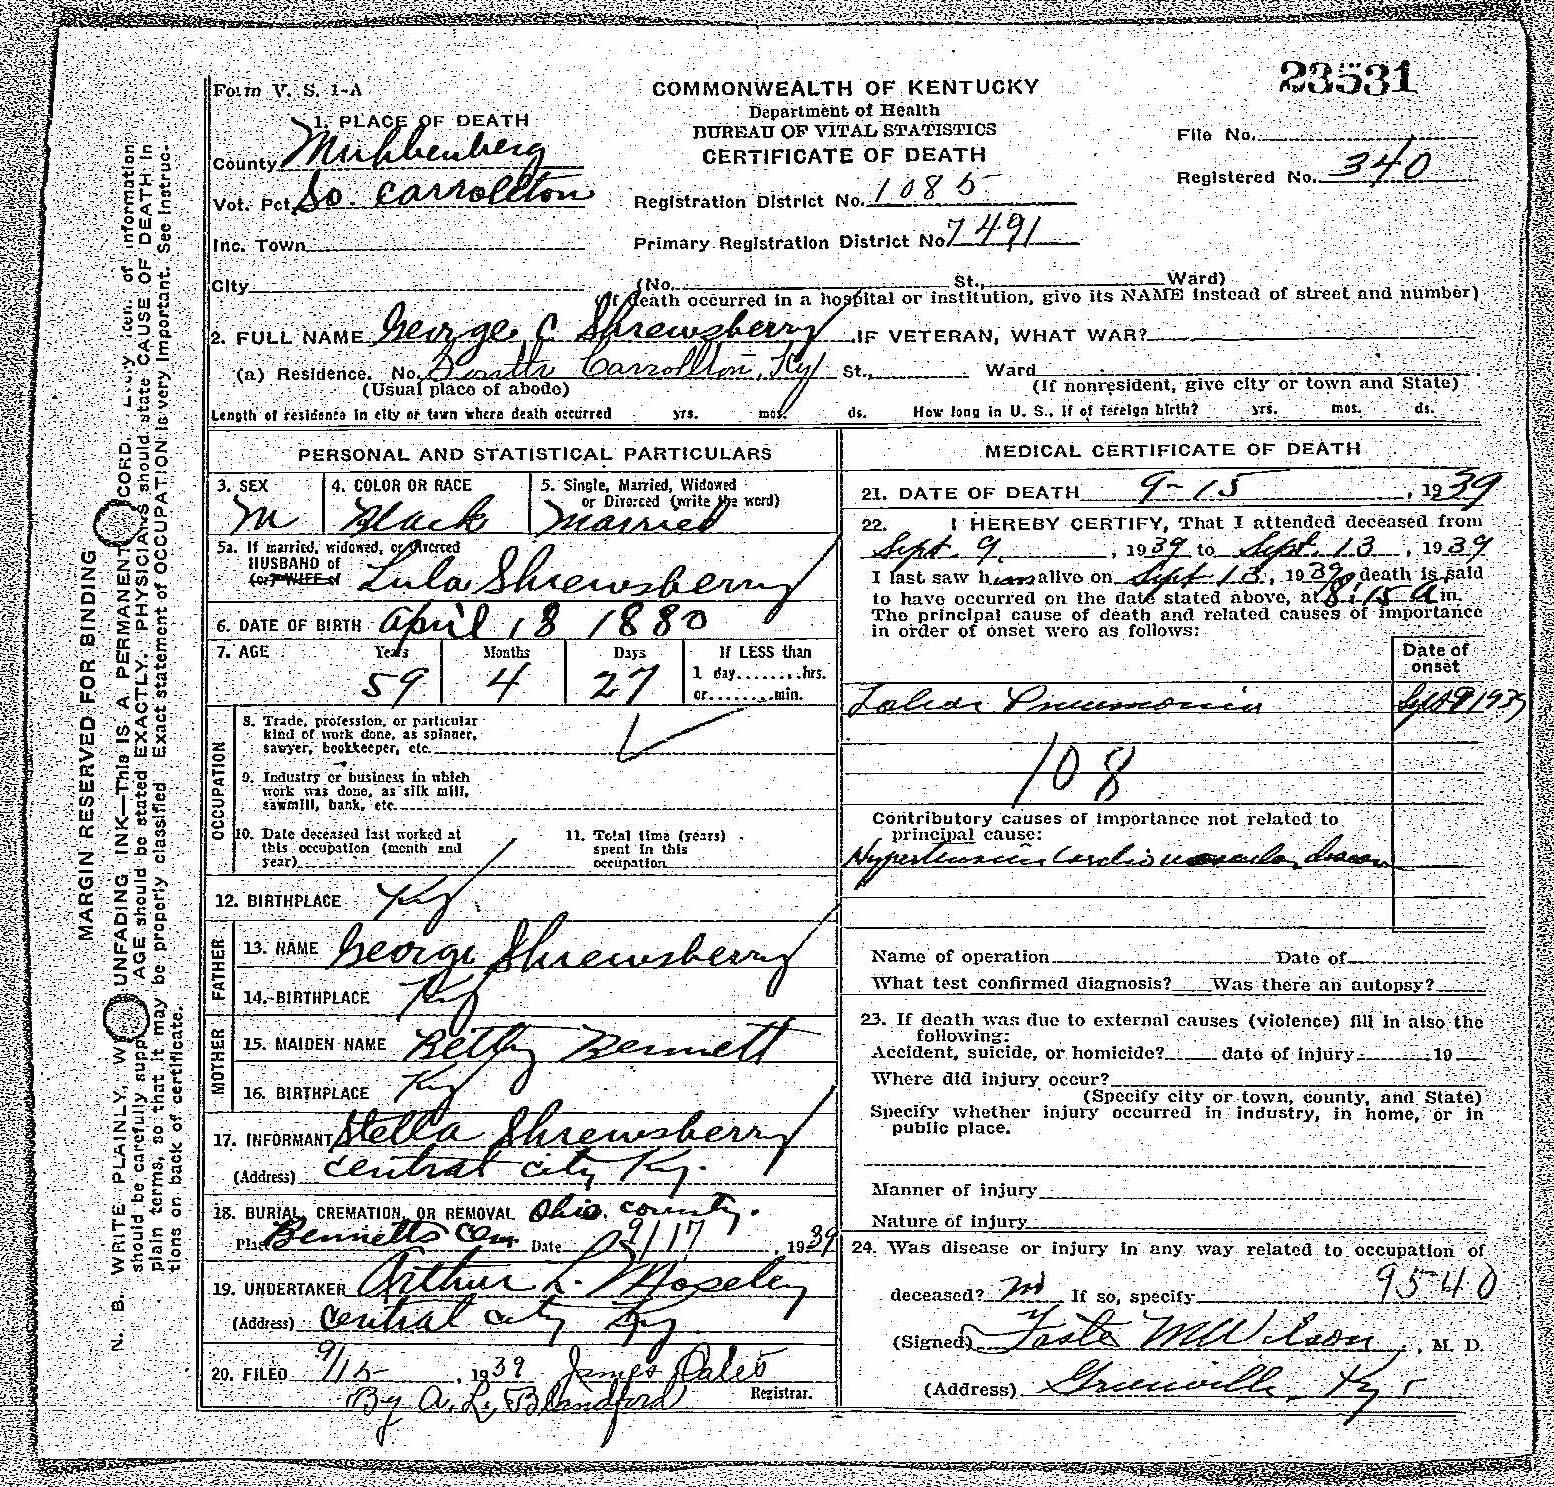 23531
Form V. S. 1-A
COMMONWEALTH OF KENTUCKY
Department of Health
BUREAU OF VITAL STATISTICS
CERTIFICATE OF DEATH
File No.
Registered No. 340
1. PLACE OF DEATH
County Muhlenberg
Vot. Pct. So. Carrollton
Inc. Town
City
Registration District No. 1085
Primary Registration District No. 7491
(No. St., Ward)
(If death occurred in a hospital or institution, give its NAME instead of street and number)
2. FULL NAME George C Shrewsberry IF VETERAN, WHAT WAR?
(a) Residence. No. South Carrollton, Ky St., Ward
(Usual place of abode) (If nonresident, give city or town and State)
Length of residence in city or town where death occurred yrs. mos. ds. How long in U. S., if of foreign birth? yrs. mos. ds.
PERSONAL AND STATISTICAL PARTICULARS
3. SEX M
4. COLOR OR RACE Black
5. Single, Married, Widowed
or Divorced (write the word)
Married
5a. If married, widowed, or divorced
HUSBAND of
(or) WIFE of Lula Shrewsberry
6. DATE OF BIRTH April 18 1880
7. AGE Years Months Days If LESS than
59 4 27 1 day........hrs.
or........min.
OCCUPATION
8. Trade, profession, or particular
kind of work done, as spinner,
sawyer, bookkeeper, etc.
9. Industry or business in which
work was done, as silk mill,
sawmill, bank, etc.
10. Date deceased last worked at
this occupation (month and
year)
11. Total time (years)
spent in this
occupation
12. BIRTHPLACE Ky
FATHER
13. NAME George Shrewsberry
14. BIRTHPLACE Ky
MOTHER
15. MAIDEN NAME Betty Bennett
16. BIRTHPLACE Ky
17. INFORMANT Stella Shrewsberry
(Address) Central City Ky.
18. BURIAL, CREMATION, OR REMOVAL Ohio. County.
Place Bennetts Cem Date 9/17, 1939
19. UNDERTAKER Arthur L. Moseley
(Address) Central City Ky
20. FILED 9/15, 1939 James
By A. L. Blandford Registrar.
MEDICAL CERTIFICATE OF DEATH
21. DATE OF DEATH 9-15, 1939
22. I HEREBY CERTIFY, That I attended deceased from
Sept. 9, 1939 to Sept. 13, 1939
I last saw him alive on Sept 13, 1939, death is said
to have occurred on the date stated above, at 8:15 A m.
The principal cause of death and related causes of importance
in order of onset were as follows:
Date of
onset
Lobar Pneumonia Sept 9 1939
108
Contributory causes of importance not related to
principal cause:
Hypertensive Cardio vascular disease
Name of operation Date of
What test confirmed diagnosis? Was there an autopsy?
23. If death was due to external causes (violence) fill in also the
following:
Accident, suicide, or homicide? date of injury 19
Where did injury occur?
(Specify city or town, county, and State)
Specify whether injury occurred in industry, in home, or in
public place.
Manner of injury
Nature of injury
24. Was disease or injury in any way related to occupation of
9540
deceased? no If so, specify
(Signed) M Wilson, M. D.
(Address) Greenville Ky
MARGIN RESERVED FOR BINDING
N. B. WRITE PLAINLY, UNFADING INK—THIS IS A PERMANENT of information
should be carefully AGE should be stated EXACTLY. PHYSICIANS should state CAUSE OF DEATH in
plain terms, so that it may be properly classified. Exact statement of OCCUPATION is very important. See instruc-
tions on back of certificate.